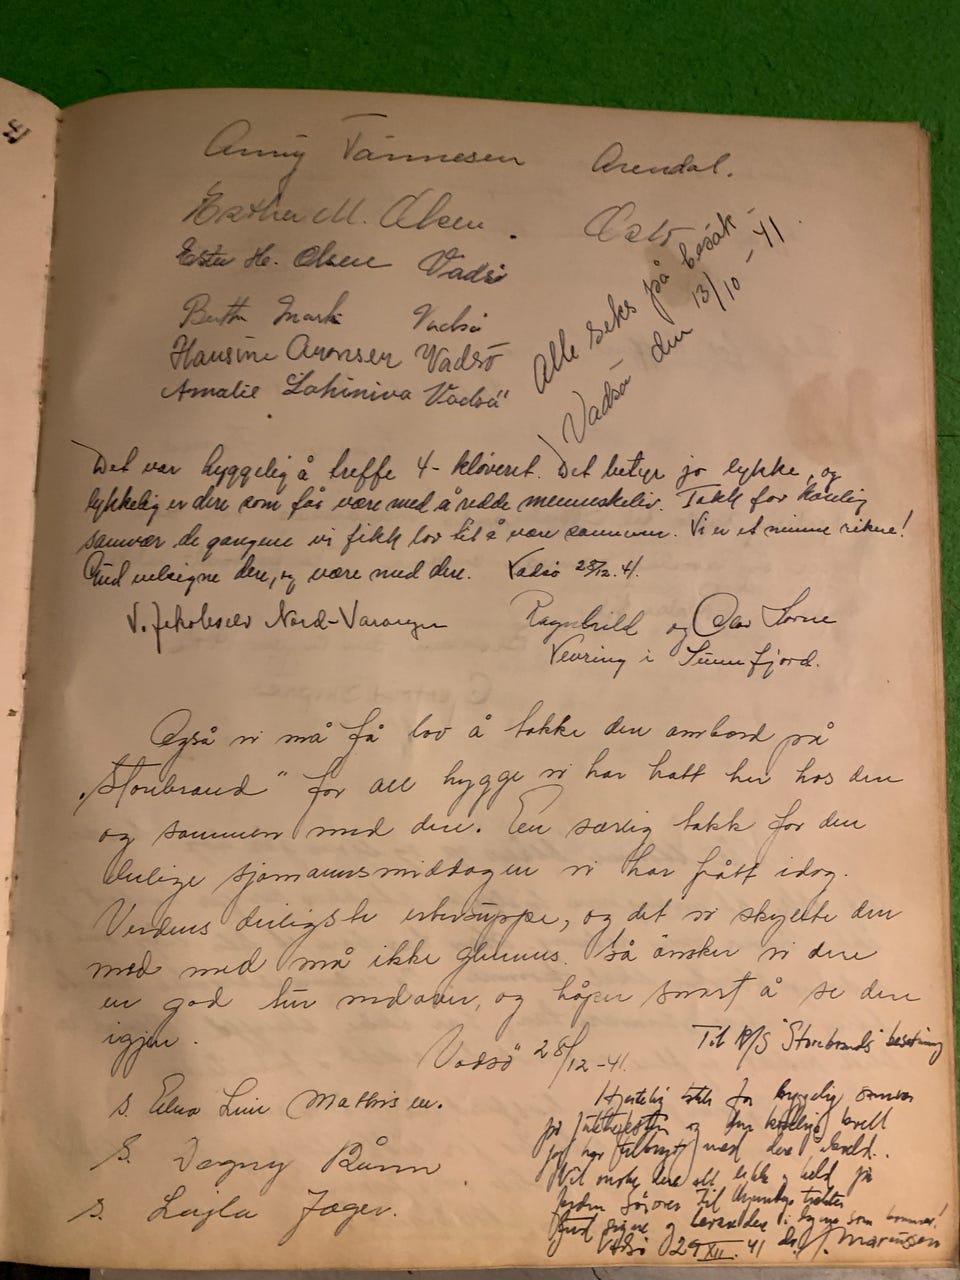 Anny Tønnesen Arendal.
Esther M. Olsen. Oslo
Ester H. Olsen Vadsø
Berth Mark Vadsø
Hansine Aronsen Vadsö
Amalie Lahiniva Vadsö
Alle seks på besøk
Vadsø den 13/10 - 41
Det var hyggelig å treffe 4-kløveret. Det betyr jo lykke, og
lykkelig er dere som får være med å redde menneskeliv. Takk for koselig
samvær de gangene vi fikk lov til å være sammen. Vi er et minne rikere!
Gud velsigne dere, og være med dere. Vadsø 28/12.41.
V. Jakobselv Nord-Varanger Ragnhild og Olav
Vevring i Sunnfjord.
Også vi må få lov å takke dere ombord på
"Storebrand" for all hygge vi har hatt her hos dere
og sammen med dere. En særlig takk for den
deilige sjømannsmiddagen vi har fått idag.
Verdens deiligste ertesuppe, og det vi skyllte den
ned med må ikke glemmes. Så ønsker vi dere
en god tur nedover, og håper snart å se dere
igjen.
Vadsö 28/12-41.
s. Edna Line Mathisen.
S. Dagny Bånn
s. Lajla Jæger.
Til R/S "Storebrands" besetning
Hjertelig takk for hyggelig samvær
på juletrefesten og den koselige kvell
jeg har tilbragt med dere ikveld.
Vil ønske dere alt lykke og held på
ferden sørover til
Gud signe og bevare dere i dagene som kommer!
Vadsø 29/XII. 41 Marcussen